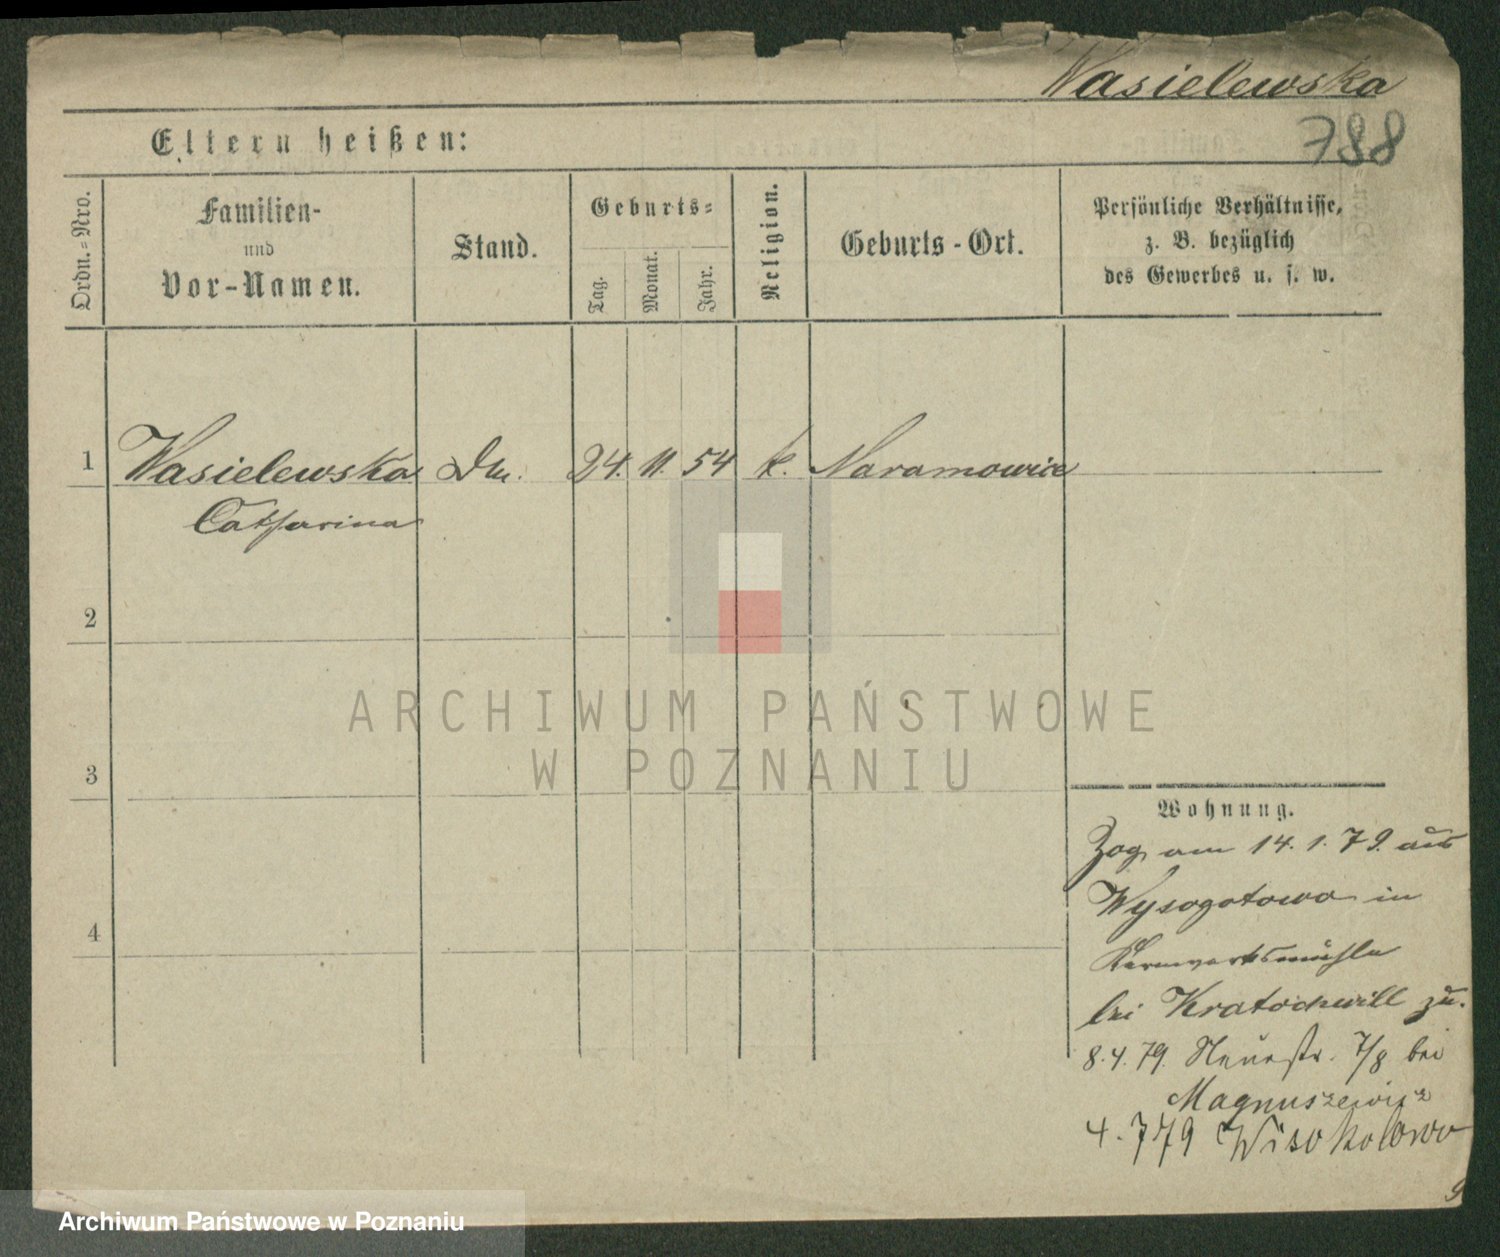 Wasielewska
788
Eltern heißen:
Ordn.=Nro.
Familien-
und
Vor-Namen.
Stand.
Geburts=
Tag.
Monat.
Jahr.
Religion.
Geburts-Ort.
Persönliche Verhältnisse,
z. B. bezüglich
des Gewerbes u. s. w.
1 Wasielewska 24. 11. 54 k. Naramowice
Catharina
2
3
4
ARCHIWUM PAŃSTWOWE
W POZNANIU
Wohnung.
Zog am 14. 1. 79. aus
Wysogotowo in
bei Kratochwill zu.
8. 4. 79. Neuestr. 7/8 bei
Magnuszewicz
4. 7 79 Wisokotowo
Archiwum Państwowe w Poznaniu